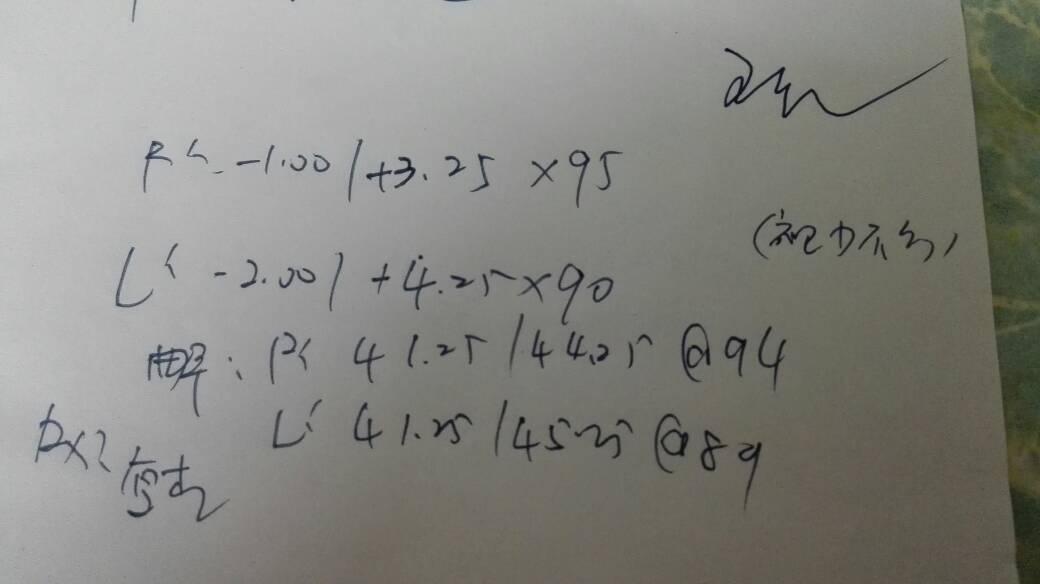 R< -1.00/+3.25 ×95
L< -2.00/+4.25×90
(视力不匀)
曲率: R< 41.25/44.25 @94
L< 41.25/45.25 @89
Dx: